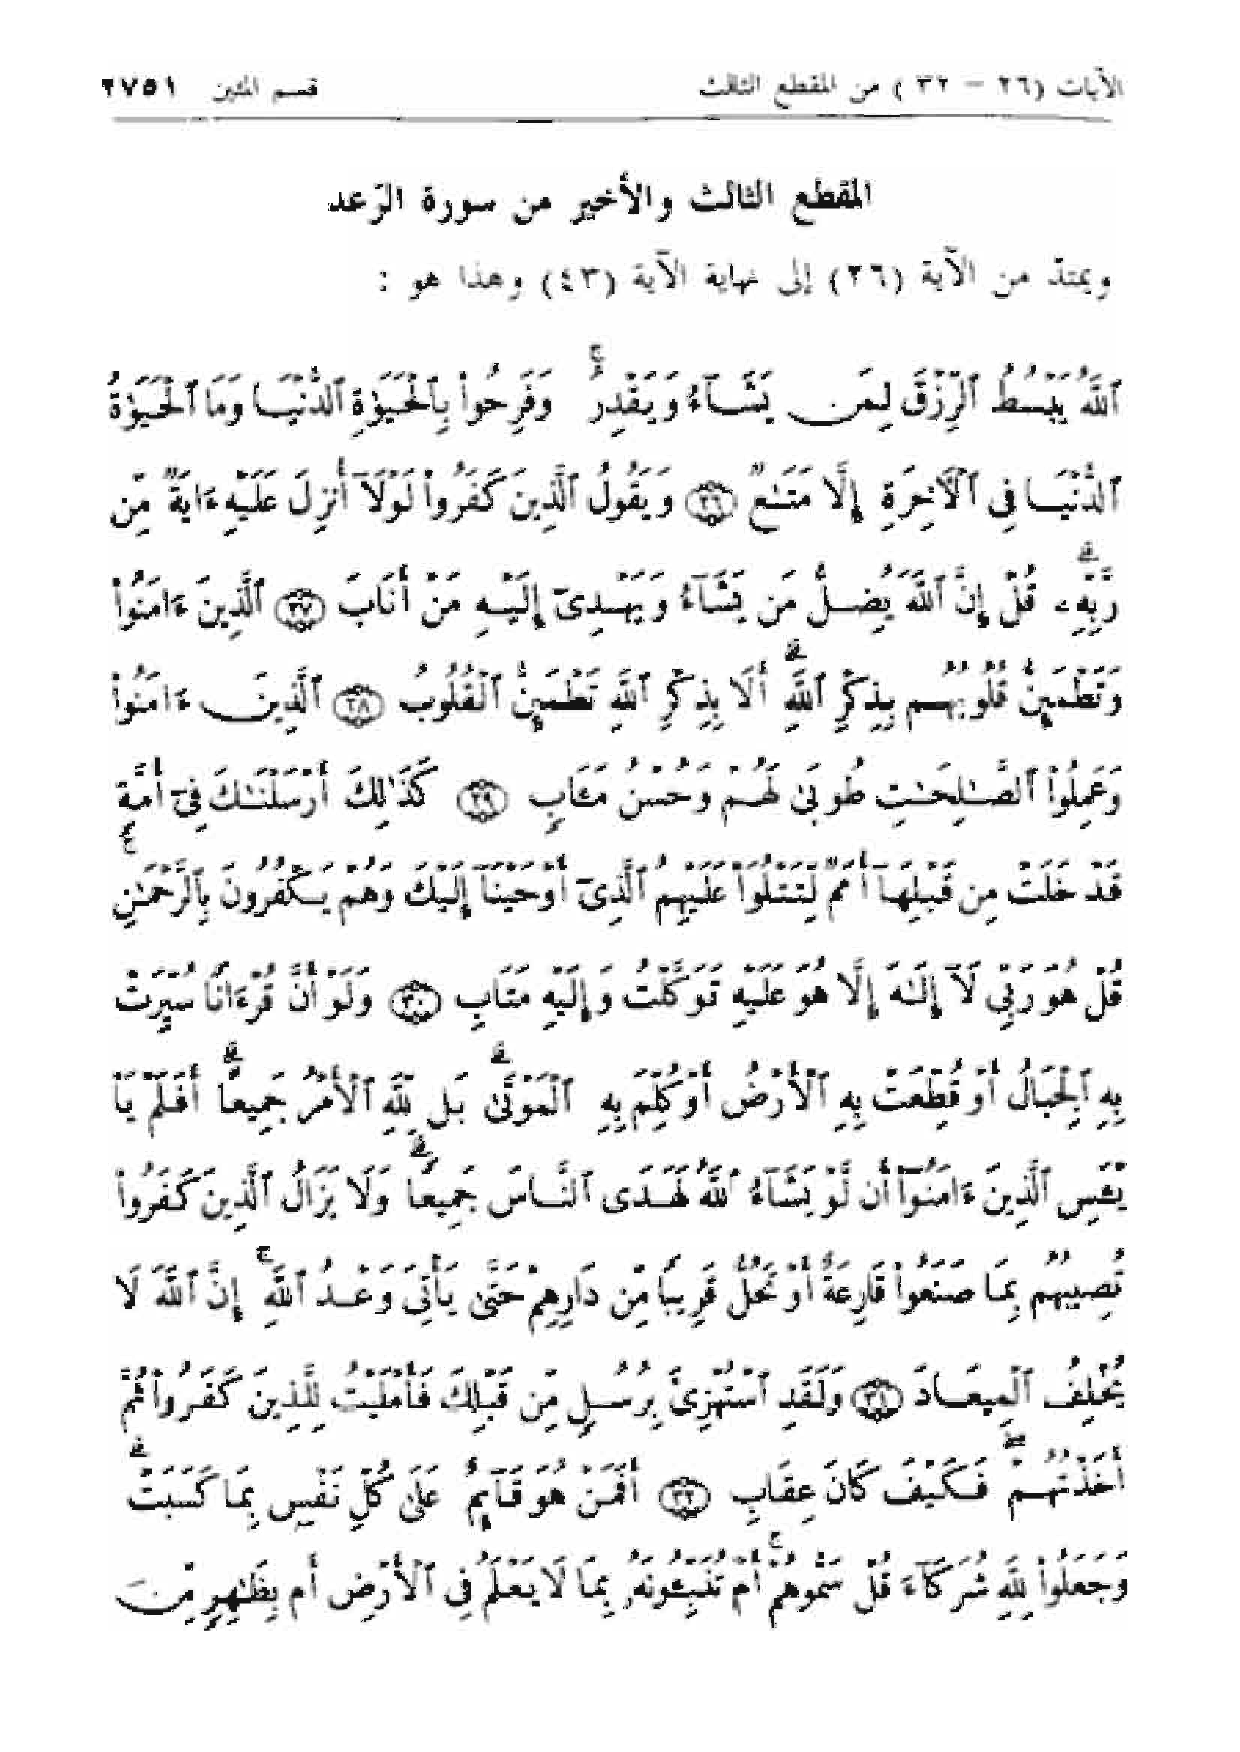 الآيات (٢٦ - ٣٢) من المقطع الثالث قسم المئين ٢٧٥١
المقطع الثالث والأخير من سورة الرّعد
ويمتدّ من الآية (٢٦) إلى نهاية الآية (٤٣) وهذا هو :
ٱللَّهُ يَبۡسُطُ ٱلرِّزۡقَ لِمَن يَشَآءُ وَيَقۡدِرُۚ وَفَرِحُواْ بِٱلۡحَيَوٰةِ ٱلدُّنۡيَا وَمَا ٱلۡحَيَوٰةُ
ٱلدُّنۡيَا فِى ٱلۡأٓخِرَةِ إِلَّا مَتَٰعٌ ﴿٢٦﴾ وَيَقُولُ ٱلَّذِينَ كَفَرُواْ لَوۡلَآ أُنزِلَ عَلَيۡهِ ءَايَةٌ مِّن
رَّبِّهِۦۗ قُلۡ إِنَّ ٱللَّهَ يُضِلُّ مَن يَشَآءُ وَيَهۡدِىٓ إِلَيۡهِ مَنۡ أَنَابَ ﴿٢٧﴾ ٱلَّذِينَ ءَامَنُواْ
وَتَطۡمَئِنُّ قُلُوبُهُم بِذِكۡرِ ٱللَّهِۗ أَلَا بِذِكۡرِ ٱللَّهِ تَطۡمَئِنُّ ٱلۡقُلُوبُ ﴿٢٨﴾ ٱلَّذِينَ ءَامَنُواْ
وَعَمِلُواْ ٱلصَّٰلِحَٰتِ طُوبَىٰ لَهُمۡ وَحُسۡنُ مَـَٔابٍ ﴿٢٩﴾ كَذَٰلِكَ أَرۡسَلۡنَٰكَ فِىٓ أُمَّةٍ
قَدۡ خَلَتۡ مِن قَبۡلِهَآ أُمَمٌ لِّتَتۡلُوَاْ عَلَيۡهِمُ ٱلَّذِىٓ أَوۡحَيۡنَآ إِلَيۡكَ وَهُمۡ يَكۡفُرُونَ بِٱلرَّحۡمَٰنِۚ
قُلۡ هُوَ رَبِّى لَآ إِلَٰهَ إِلَّا هُوَ عَلَيۡهِ تَوَكَّلۡتُ وَإِلَيۡهِ مَتَابِ ﴿٣٠﴾ وَلَوۡ أَنَّ قُرۡءَانًا سُيِّرَتۡ
بِهِ ٱلۡجِبَالُ أَوۡ قُطِّعَتۡ بِهِ ٱلۡأَرۡضُ أَوۡ كُلِّمَ بِهِ ٱلۡمَوۡتَىٰۗ بَل لِّلَّهِ ٱلۡأَمۡرُ جَمِيعًاۗ أَفَلَمۡ يَاۡ
يۡـَٔسِ ٱلَّذِينَ ءَامَنُوٓاْ أَن لَّوۡ يَشَآءُ ٱللَّهُ لَهَدَى ٱلنَّاسَ جَمِيعًاۗ وَلَا يَزَالُ ٱلَّذِينَ كَفَرُواْ
تُصِيبُهُم بِمَا صَنَعُواْ قَارِعَةٌ أَوۡ تَحُلُّ قَرِيبًا مِّن دَارِهِمۡ حَتَّىٰ يَأۡتِىَ وَعۡدُ ٱللَّهِۚ إِنَّ ٱللَّهَ لَا
يُخۡلِفُ ٱلۡمِيعَادَ ﴿٣١﴾ وَلَقَدِ ٱسۡتُهۡزِئَ بِرُسُلٍ مِّن قَبۡلِكَ فَأَمۡلَيۡتُ لِلَّذِينَ كَفَرُواْ ثُمَّ
أَخَذۡتُهُمۡۖ فَكَيۡفَ كَانَ عِقَابِ ﴿٣٢﴾ أَفَمَنۡ هُوَ قَآئِمٌ عَلَىٰ كُلِّ نَفۡسِۭ بِمَا كَسَبَتۡۗ
وَجَعَلُواْ لِلَّهِ شُرَكَآءَ قُلۡ سَمُّوهُمۡۚ أَمۡ تُنَبِّـُٔونَهُۥ بِمَا لَا يَعۡلَمُ فِى ٱلۡأَرۡضِ أَم بِظَٰهِرٍ مِّنَ